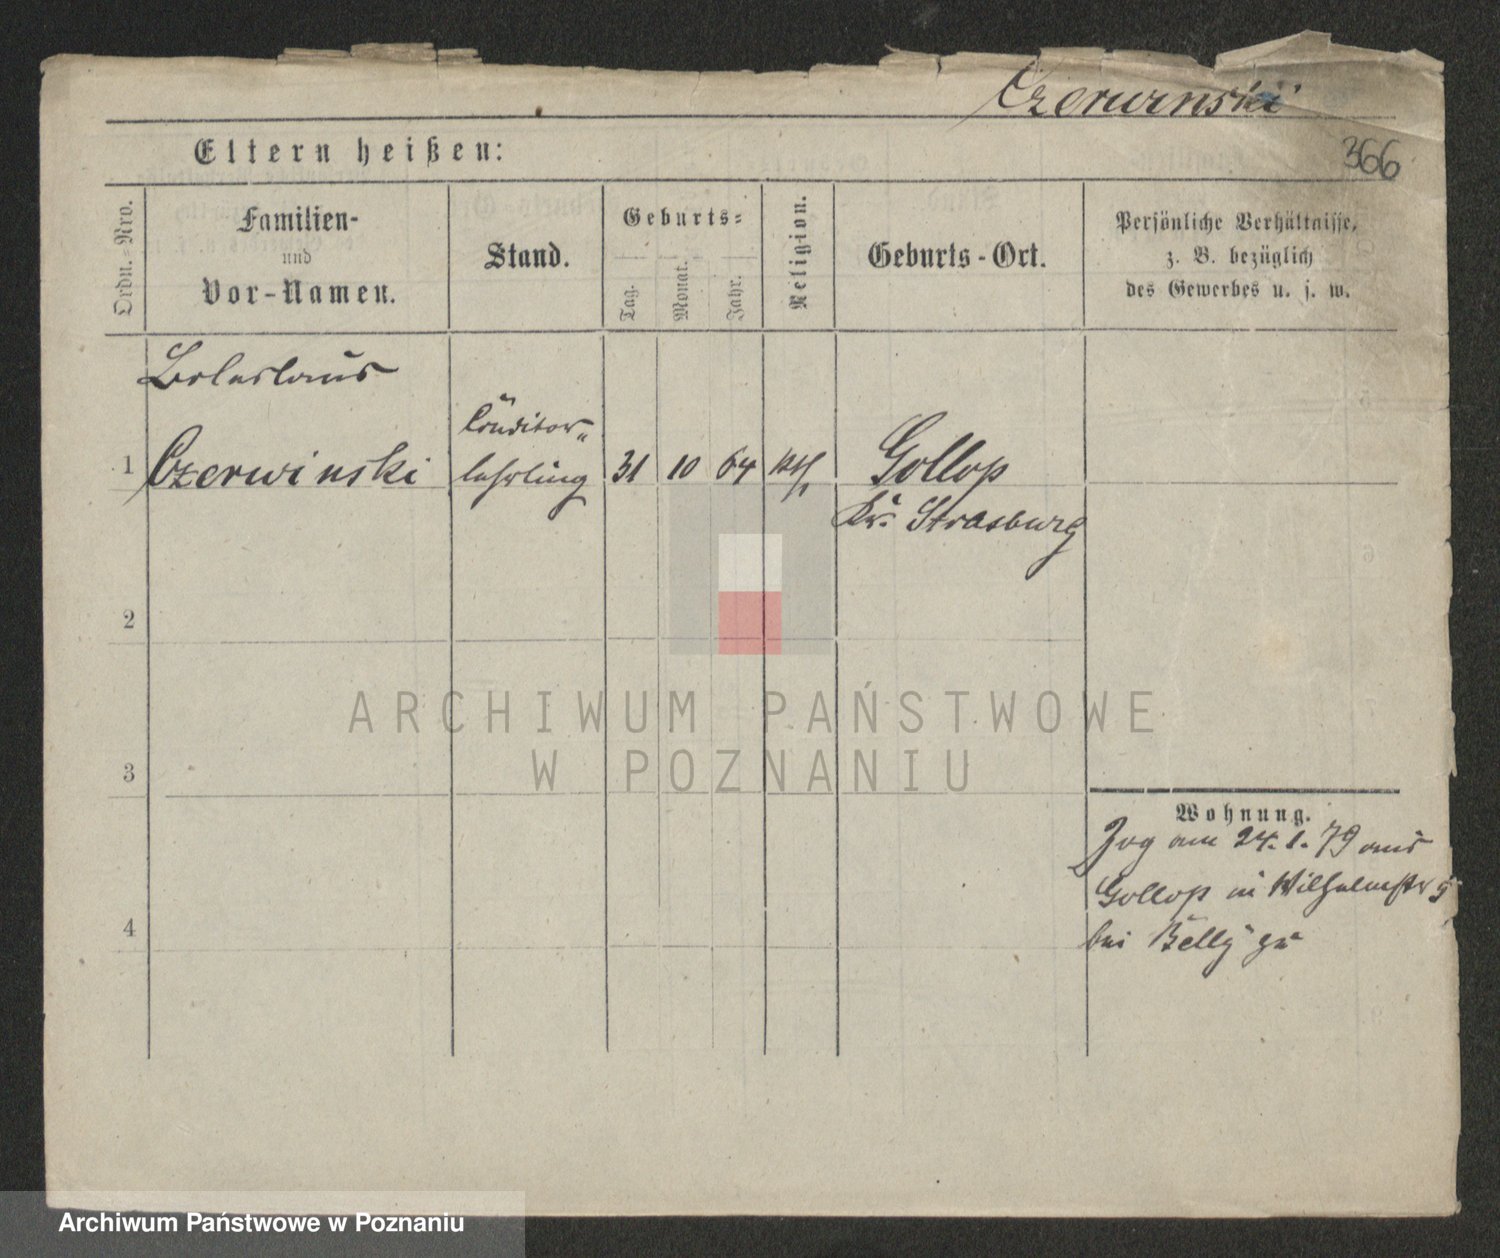 Czerwinski
366
Eltern heißen:
Ordn.-Nro.
Familien-
und
Vor-Namen.
Stand.
Geburts-
Tag.
Monat.
Jahr.
Religion.
Geburts-Ort.
Persönliche Verhältnisse,
z. B. bezüglich
des Gewerbes u. s. w.
Boleslaus
Conditor-
1 Czerwinski lehrling 31 10 64 kth Gollop
Kr. Strasburg
2
3
4
Wohnung.
Zog am 24. 1. 79 aus
Gollop in Wilhelmstr 5
bei Bely zu
ARCHIWUM PAŃSTWOWE
W POZNANIU
Archiwum Państwowe w Poznaniu